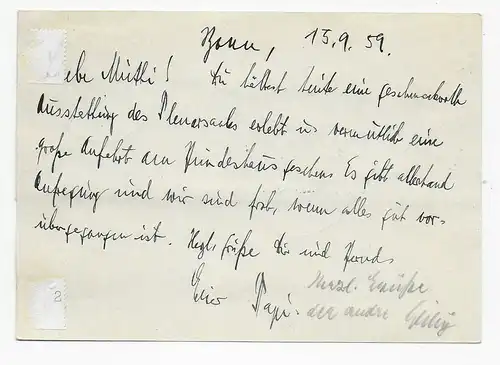 Bonn, 15.9.59.
Liebe Mutti! Du hättest heute eine geschmackvolle
Ausstattung des Plenarsaales erlebt u. vermutlich eine
große Anfahrt am Bundeshaus gesehen. Es gibt allerhand
Aufregung und wir sind froh, wenn alles gut vor-
übergegangen ist. Hgl. Grüße Dir und
Papi. Herzl. Grüße
der andre
8